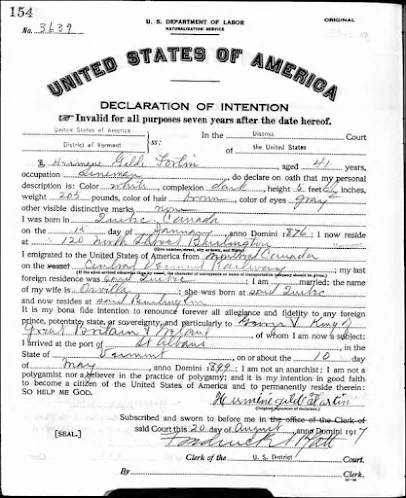 154
U. S. DEPARTMENT OF LABOR
NATURALIZATION SERVICE
ORIGINAL
No. 3639
UNITED STATES OF AMERICA
DECLARATION OF INTENTION
☞ Invalid for all purposes seven years after the date hereof.
United States of America
District of Vermont
ss:
In the District Court
of the United States
I, Hermene Gilde Fortin, aged 41 years,
occupation Lineman, do declare on oath that my personal
description is: Color white, complexion dark, height 5 feet inches,
weight 205 pounds, color of hair brown, color of eyes gray
other visible distinctive marks none
I was born in Quebec Canada
on the 15 day of January, anno Domini 1876; I now reside
at 120 North Street Burlington
(Give number, street, city or town, and State.)
I emigrated to the United States of America from Montreal Canada
on the vessel Central Vermont Railway; my last
(If the alien arrived otherwise than by vessel, the character of conveyance or name of transportation company should be given.)
foreign residence was said Quebec; I am married; the name
of my wife is Orvilla; she was born at said Quebec
and now resides at said Burlington
It is my bona fide intention to renounce forever all allegiance and fidelity to any foreign
prince, potentate, state, or sovereignty, and particularly to George V King of
Great Britain & Ireland, of whom I am now a subject;
I arrived at the port of St Albans, in the
State of Vermont, on or about the 10 day
of May, anno Domini 1899; I am not an anarchist; I am not a
polygamist nor a believer in the practice of polygamy; and it is my intention in good faith
to become a citizen of the United States of America and to permanently reside therein:
SO HELP ME GOD.
Hermenégilde Fortin
(Original signature of declarant.)
Subscribed and sworn to before me in the office of the Clerk of
said Court this 20 day of August, anno Domini 1917
[SEAL.]
Clerk of the U. S. District Court.
By , Clerk.